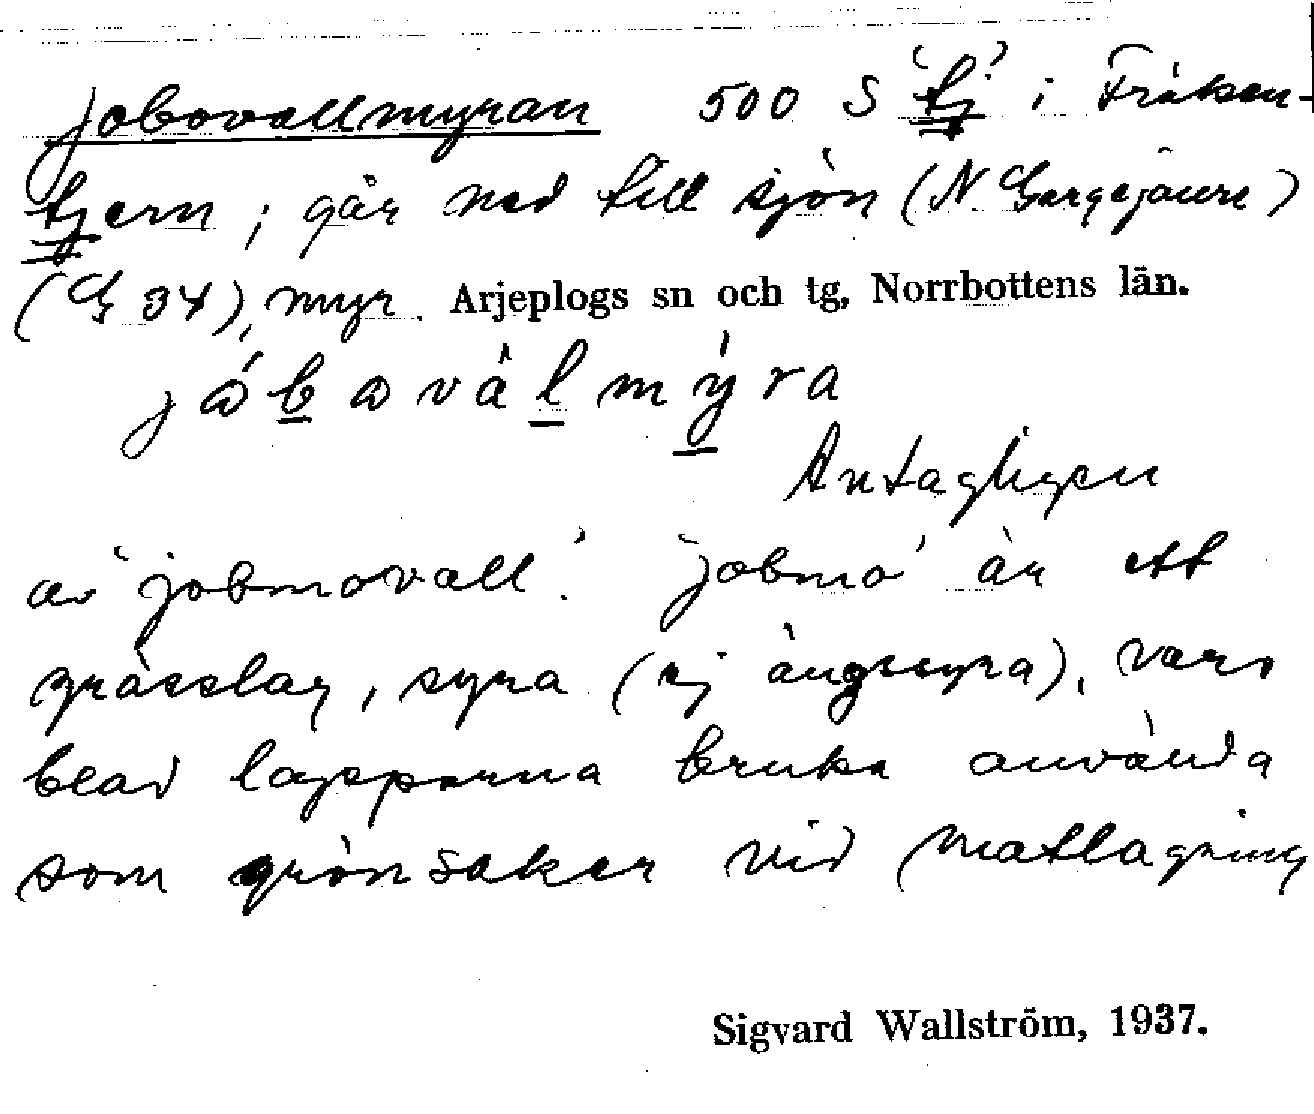 jobovallmyran 500 S 'tj' i Fräken-
tjern; går ned till sjön (N Gargejaure)
(G 34), myr. Arjeplogs sn och tg, Norrbottens län.
jåbavàlmýra
Antagligen
av 'jobmovall'. 'jobmo' är ett
grässlag, syra (ej ängssyra), vars
blad lapparna bruka använda
som grönsaker vid matlagning
Sigvard Wallström, 1937.